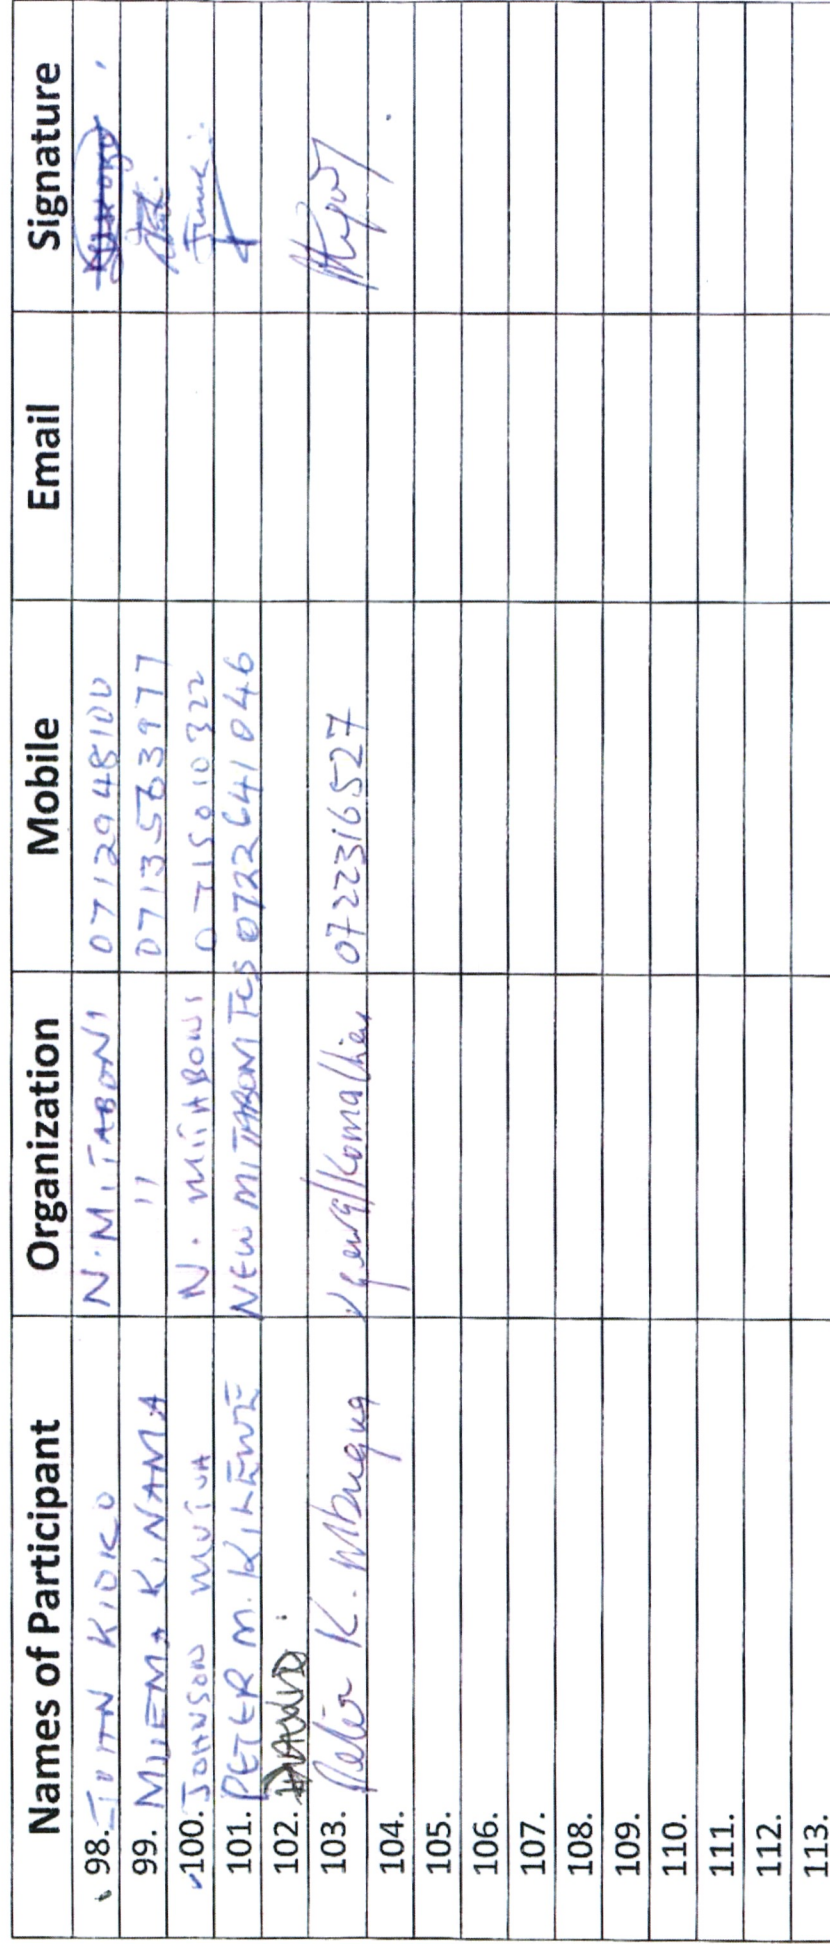 Names of Participant Organization Mobile Email Signature
98. JOHN KIOKO N. MITABONI 0712948100
99. MUEMA KINAMA " 0713563977
100. JOHNSON MUTUA N. MITABONI 0715010322
101. PETER M. KILEWE NEW MITABONI FCS 0722641046
102.
103. Peter K. Mbugua 0722316527
104.
105.
106.
107.
108.
109.
110.
111.
112.
113.